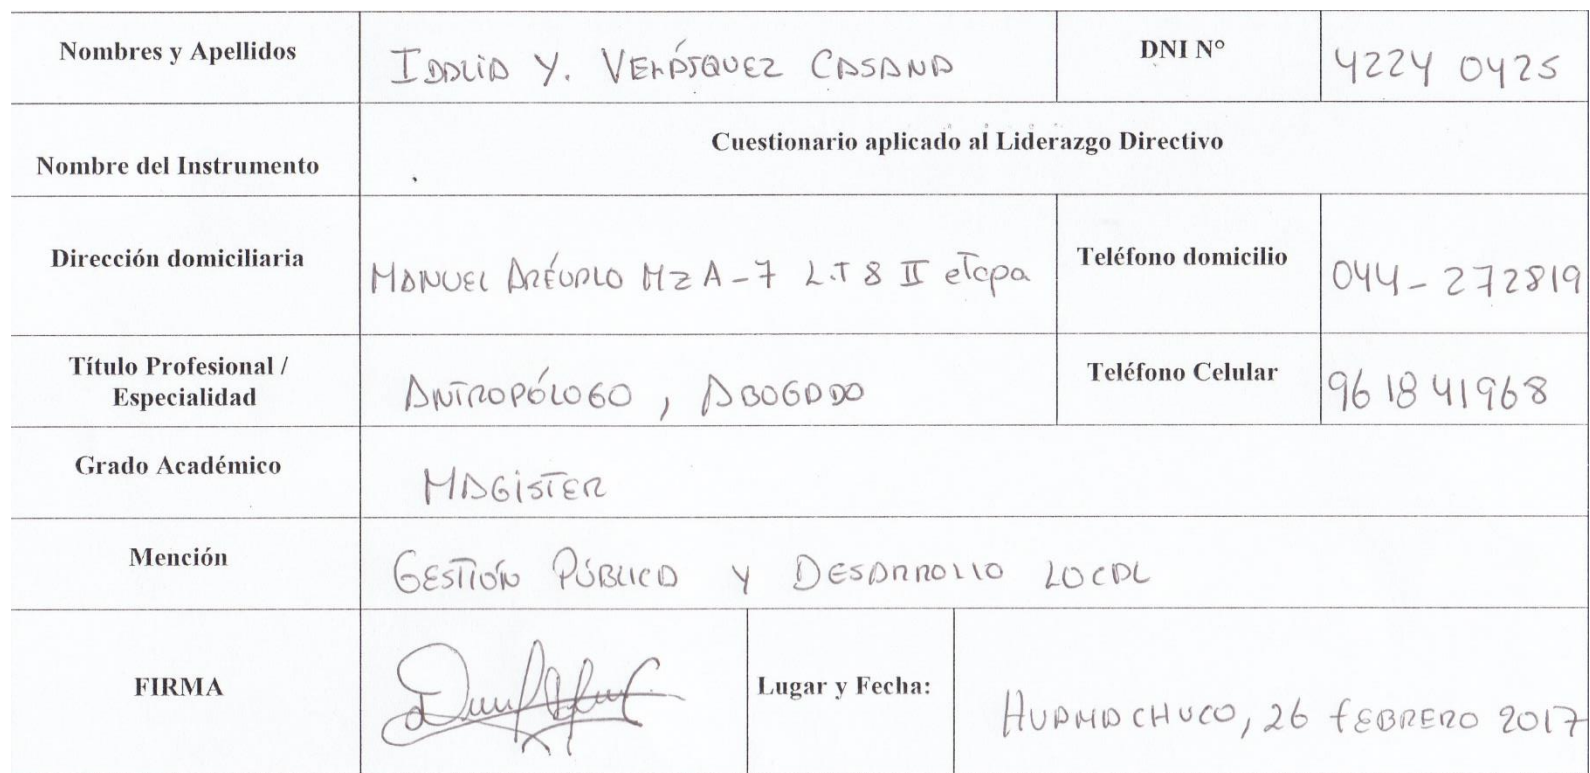 Nombres y Apellidos IDALIA Y. VELÁSQUEZ CASANA DNI N° 4224 0425
Nombre del Instrumento Cuestionario aplicado al Liderazgo Directivo
Dirección domiciliaria MANUEL ARÉVALO MZ A-7 L.T 8 II eTapa Teléfono domicilio 044-272819
Título Profesional /
Especialidad ANTROPÓLOGO, ABOGADO Teléfono Celular 961841968
Grado Académico MAGISTER
Mención GESTIÓN PÚBLICA Y DESARROLLO LOCAL
FIRMA Lugar y Fecha: HUAMACHUCO, 26 fEBRERO 2017